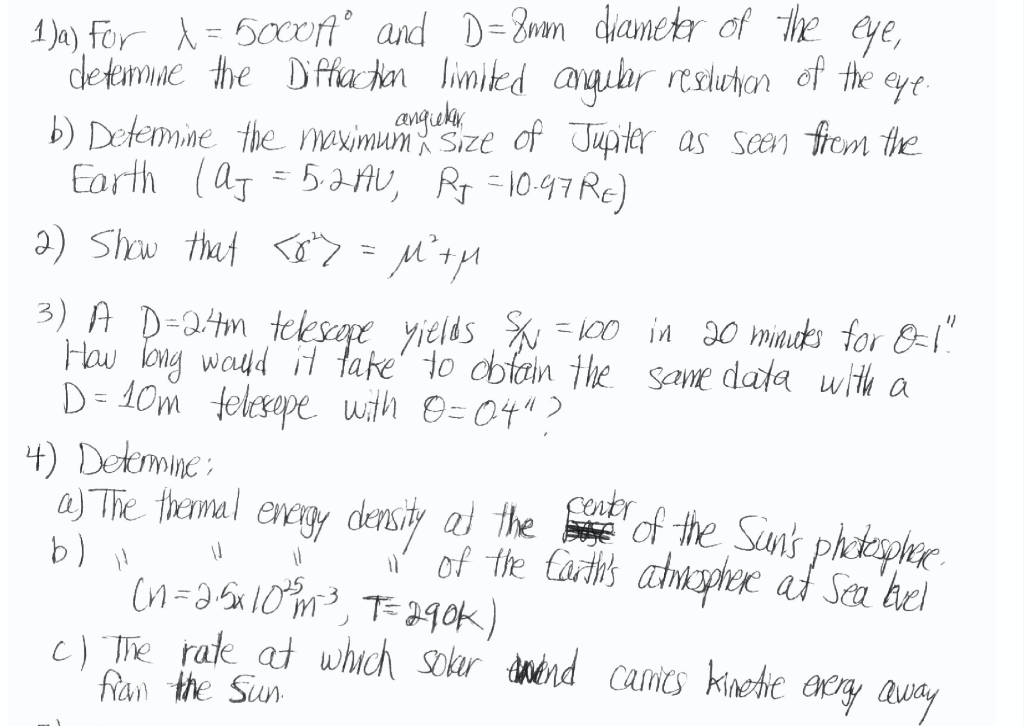 1)a) For λ = 5000A° and D=8mm diameter of the eye,
determine the Diffraction limited angular resolution of the eye.
b) Determine the maximum angular size of Jupiter as seen from the
Earth (aJ = 5.2AU, RJ = 10.97RE)
2) Show that <x²> = μ²+μ
3) A D=2.4m telescope yields S/N = 100 in 20 minutes for θ=1".
How long would it take to obtain the same data with a
D = 10m telescope with θ=0.4"?
4) Determine:
a) The thermal energy density at the center of the Sun's photosphere.
b) " " " " of the Earth's atmosphere at Sea level
(n=2.5x10²⁵m⁻³, T=290K)
c) The rate at which solar wind carries kinetic energy away
from the Sun.